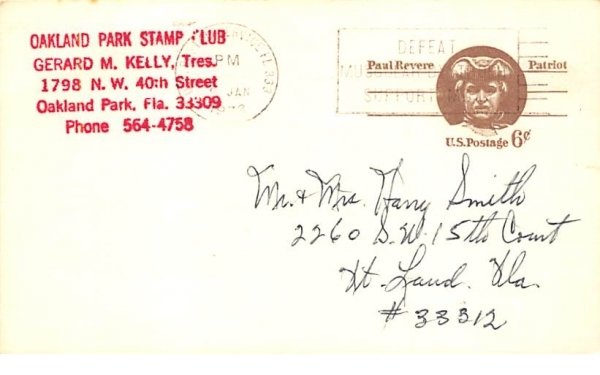 OAKLAND PARK STAMP CLUB
GERARD M. KELLY, Tres.
1798 N. W. 40th Street
Oakland Park, Fla. 33309
Phone 564-4758
PM
JAN
DEFEAT
SUPPORT
Paul Revere Patriot
U.S. Postage 6¢
Mr. & Mrs. Harry Smith
2260 S.W. 15th Court
Ft. Laud. Fla.
# 33312